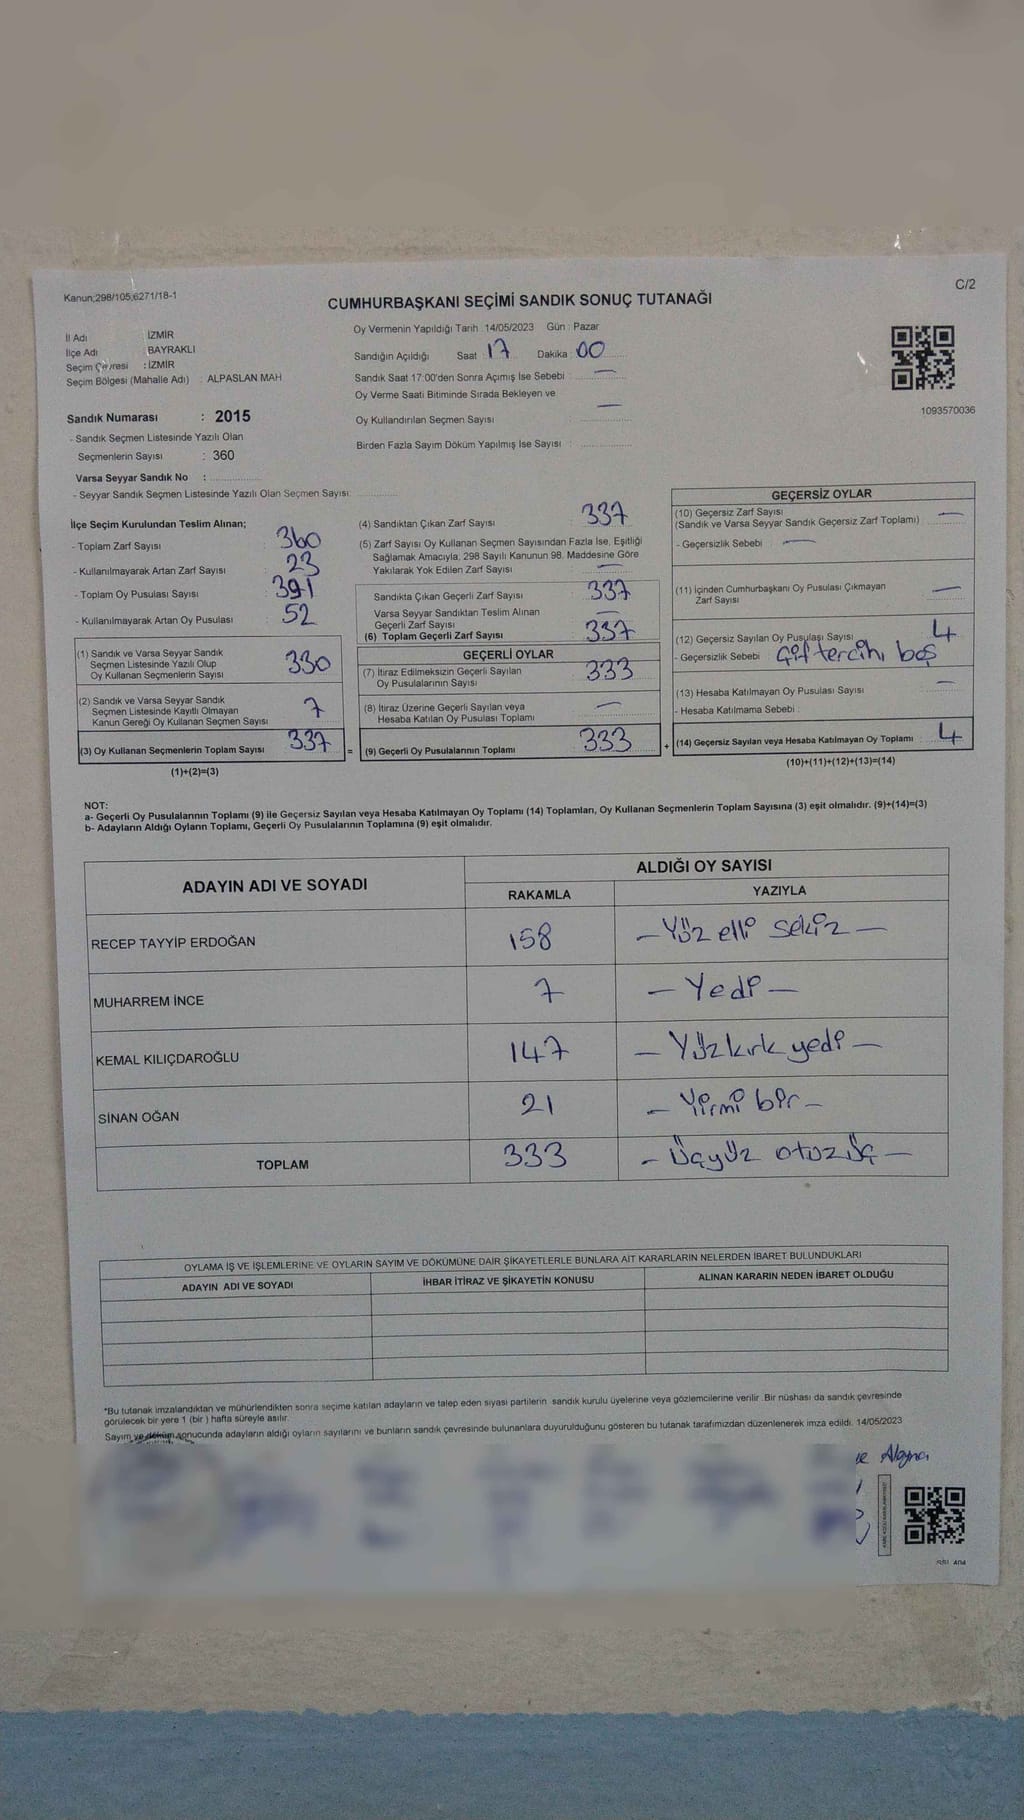 Kanun;298/105;6271/18-1
C/2
CUMHURBAŞKANI SEÇİMİ SANDIK SONUÇ TUTANAĞI
İl Adı İZMİR
İlçe Adı BAYRAKLI
Seçim Çevresi : İZMİR
Seçim Bölgesi (Mahalle Adı) : ALPASLAN MAH
Sandık Numarası : 2015
- Sandık Seçmen Listesinde Yazılı Olan
Seçmenlerin Sayısı : 360
Varsa Seyyar Sandık No :
- Seyyar Sandık Seçmen Listesinde Yazılı Olan Seçmen Sayısı:
Oy Vermenin Yapıldığı Tarih 14/05/2023 Gün : Pazar
Sandığın Açıldığı Saat 17 Dakika : 00
Sandık Saat 17:00'den Sonra Açımış İse Sebebi : —
Oy Verme Saati Bitiminde Sırada Bekleyen ve
Oy Kullandırılan Seçmen Sayısı —
Birden Fazla Sayım Döküm Yapılmış İse Sayısı :
1093570036
İlçe Seçim Kurulundan Teslim Alınan;
- Toplam Zarf Sayısı : 360
- Kullanılmayarak Artan Zarf Sayısı : 23
- Toplam Oy Pusulası Sayısı : 391
- Kullanılmayarak Artan Oy Pusulası : 52
(1) Sandık ve Varsa Seyyar Sandık
Seçmen Listesinde Yazılı Olup
Oy Kullanan Seçmenlerin Sayısı 330
(2) Sandık ve Varsa Seyyar Sandık
Seçmen Listesinde Kayıtlı Olmayan
Kanun Gereği Oy Kullanan Seçmen Sayısı 7
(3) Oy Kullanan Seçmenlerin Toplam Sayısı 337
(1)+(2)=(3)
(4) Sandıktan Çıkan Zarf Sayısı : 337
(5) Zarf Sayısı Oy Kullanan Seçmen Sayısından Fazla İse, Eşitliği
Sağlamak Amacıyla, 298 Sayılı Kanunun 98. Maddesine Göre
Yakılarak Yok Edilen Zarf Sayısı : —
Sandıkta Çıkan Geçerli Zarf Sayısı : 337
Varsa Seyyar Sandıktan Teslim Alınan
Geçerli Zarf Sayısı : —
(6) Toplam Geçerli Zarf Sayısı : 337
GEÇERLİ OYLAR
(7) İtiraz Edilmeksizin Geçerli Sayılan
Oy Pusulalarının Sayısı : 333
(8) İtiraz Üzerine Geçerli Sayılan veya
Hesaba Katılan Oy Pusulası Toplamı : —
= (9) Geçerli Oy Pusulalarının Toplamı : 333
GEÇERSİZ OYLAR
(10) Geçersiz Zarf Sayısı
(Sandık ve Varsa Seyyar Sandık Geçersiz Zarf Toplamı) : —
- Geçersizlik Sebebi : —
(11) İçinden Cumhurbaşkanı Oy Pusulası Çıkmayan
Zarf Sayısı : —
(12) Geçersiz Sayılan Oy Pusulası Sayısı : 4
- Geçersizlik Sebebi Çift tercihi boş
(13) Hesaba Katılmayan Oy Pusulası Sayısı : —
- Hesaba Katılmama Sebebi :
+ (14) Geçersiz Sayılan veya Hesaba Katılmayan Oy Toplamı : 4
(10)+(11)+(12)+(13)=(14)
NOT:
a- Geçerli Oy Pusulalarının Toplamı (9) ile Geçersiz Sayılan veya Hesaba Katılmayan Oy Toplamı (14) Toplamları, Oy Kullanan Seçmenlerin Toplam Sayısına (3) eşit olmalıdır. (9)+(14)=(3)
b- Adayların Aldığı Oyların Toplamı, Geçerli Oy Pusulalarının Toplamına (9) eşit olmalıdır.
ADAYIN ADI VE SOYADI ALDIĞI OY SAYISI
RAKAMLA YAZIYLA
RECEP TAYYİP ERDOĞAN 158 — Yüz elli sekiz —
MUHARREM İNCE 7 — Yedi —
KEMAL KILIÇDAROĞLU 147 — Yüzkırk yedi —
SİNAN OĞAN 21 — Yirmi bir —
TOPLAM 333 — Üçyüz otuzüç —
OYLAMA İŞ VE İŞLEMLERİNE VE OYLARIN SAYIM VE DÖKÜMÜNE DAİR ŞİKAYETLERLE BUNLARA AİT KARARLARIN NELERDEN İBARET BULUNDUKLARI
ADAYIN ADI VE SOYADI İHBAR İTİRAZ VE ŞİKAYETİN KONUSU ALINAN KARARIN NEDEN İBARET OLDUĞU
*Bu tutanak imzalandıktan ve mühürlendikten sonra seçime katılan adayların ve talep eden siyasi partilerin sandık kurulu üyelerine veya gözlemcilerine verilir. Bir nüshası da sandık çevresinde
görülecek bir yere 1 (bir ) hafta süreyle asılır.
Sayım ve döküm sonucunda adayların aldığı oyların sayılarını ve bunların sandık çevresinde bulunanlara duyurulduğunu gösteren bu tutanak tarafımızdan düzenlenerek imza edildi. 14/05/2023